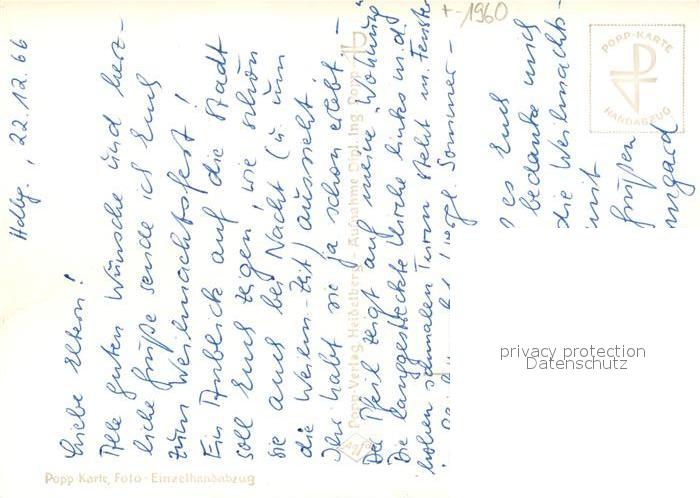 Hdbg., 22.12.66
Liebe Eltern!
Alle guten Wünsche und herz-
liche Grüße sende ich Euch
zum Weihnachtsfest!
Ein Anblick auf die Stadt
soll Euch zeigen, wie schön
sie auch bei Nacht (u. um
die Weihn.-Zeit) aussieht
Ihr habt sie ja schon erlebt -
Der Pfeil zeigt auf meine "Wohnung"
Die langgestreckte Kirche links m.d.
hohen schmalen Turm steht m. Fenster
Sommer-
+-1960
es Euch
bedanke mich
die Weihnachts-
mit
Grüßen
mgard
POPP-KARTE
HANDABZUG
Popp-Verlag Heidelberg - Aufnahme Dipl. Ing. Popp
Agfa
Popp Karte, Foto-Einzelhandabzug
privacy protection
Datenschutz